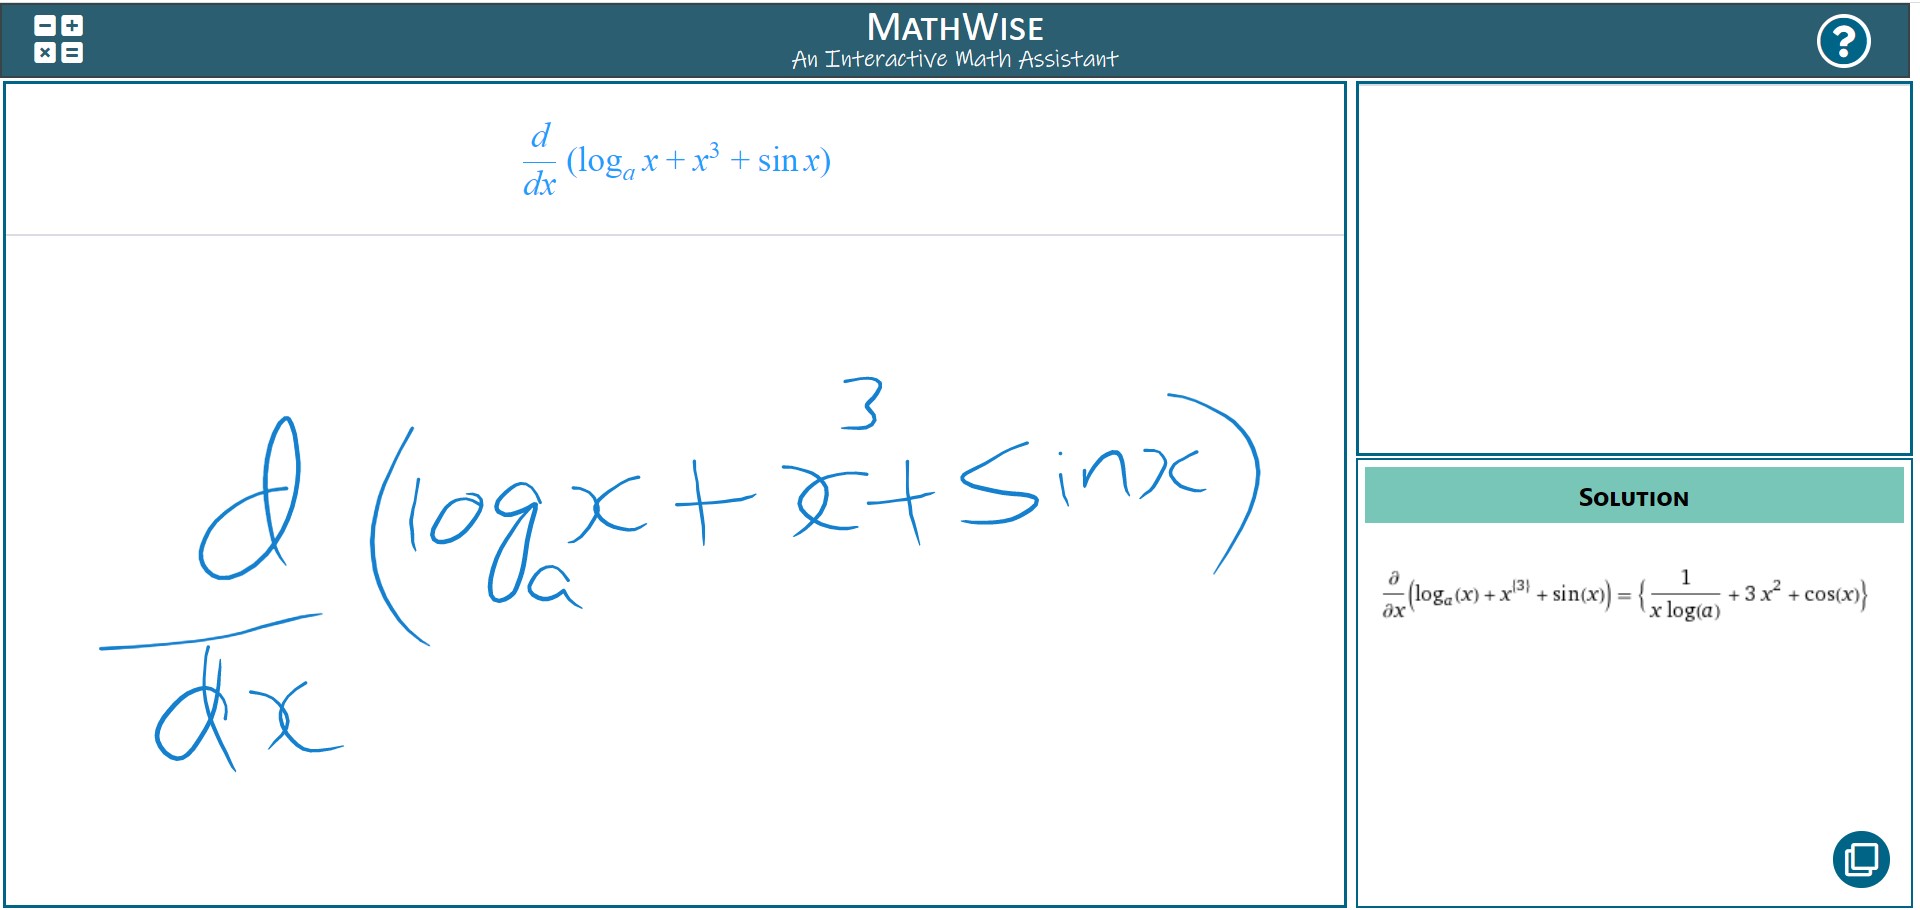 MATHWISE
An Interactive Math Assistant
?
d/dx (logₐ x + x³ + sin x)
d/dx (logₐ x + x³ + sin x)
SOLUTION
∂/∂x (logₐ(x) + x^{3} + sin(x)) = {1/(x log(a)) + 3 x² + cos(x)}